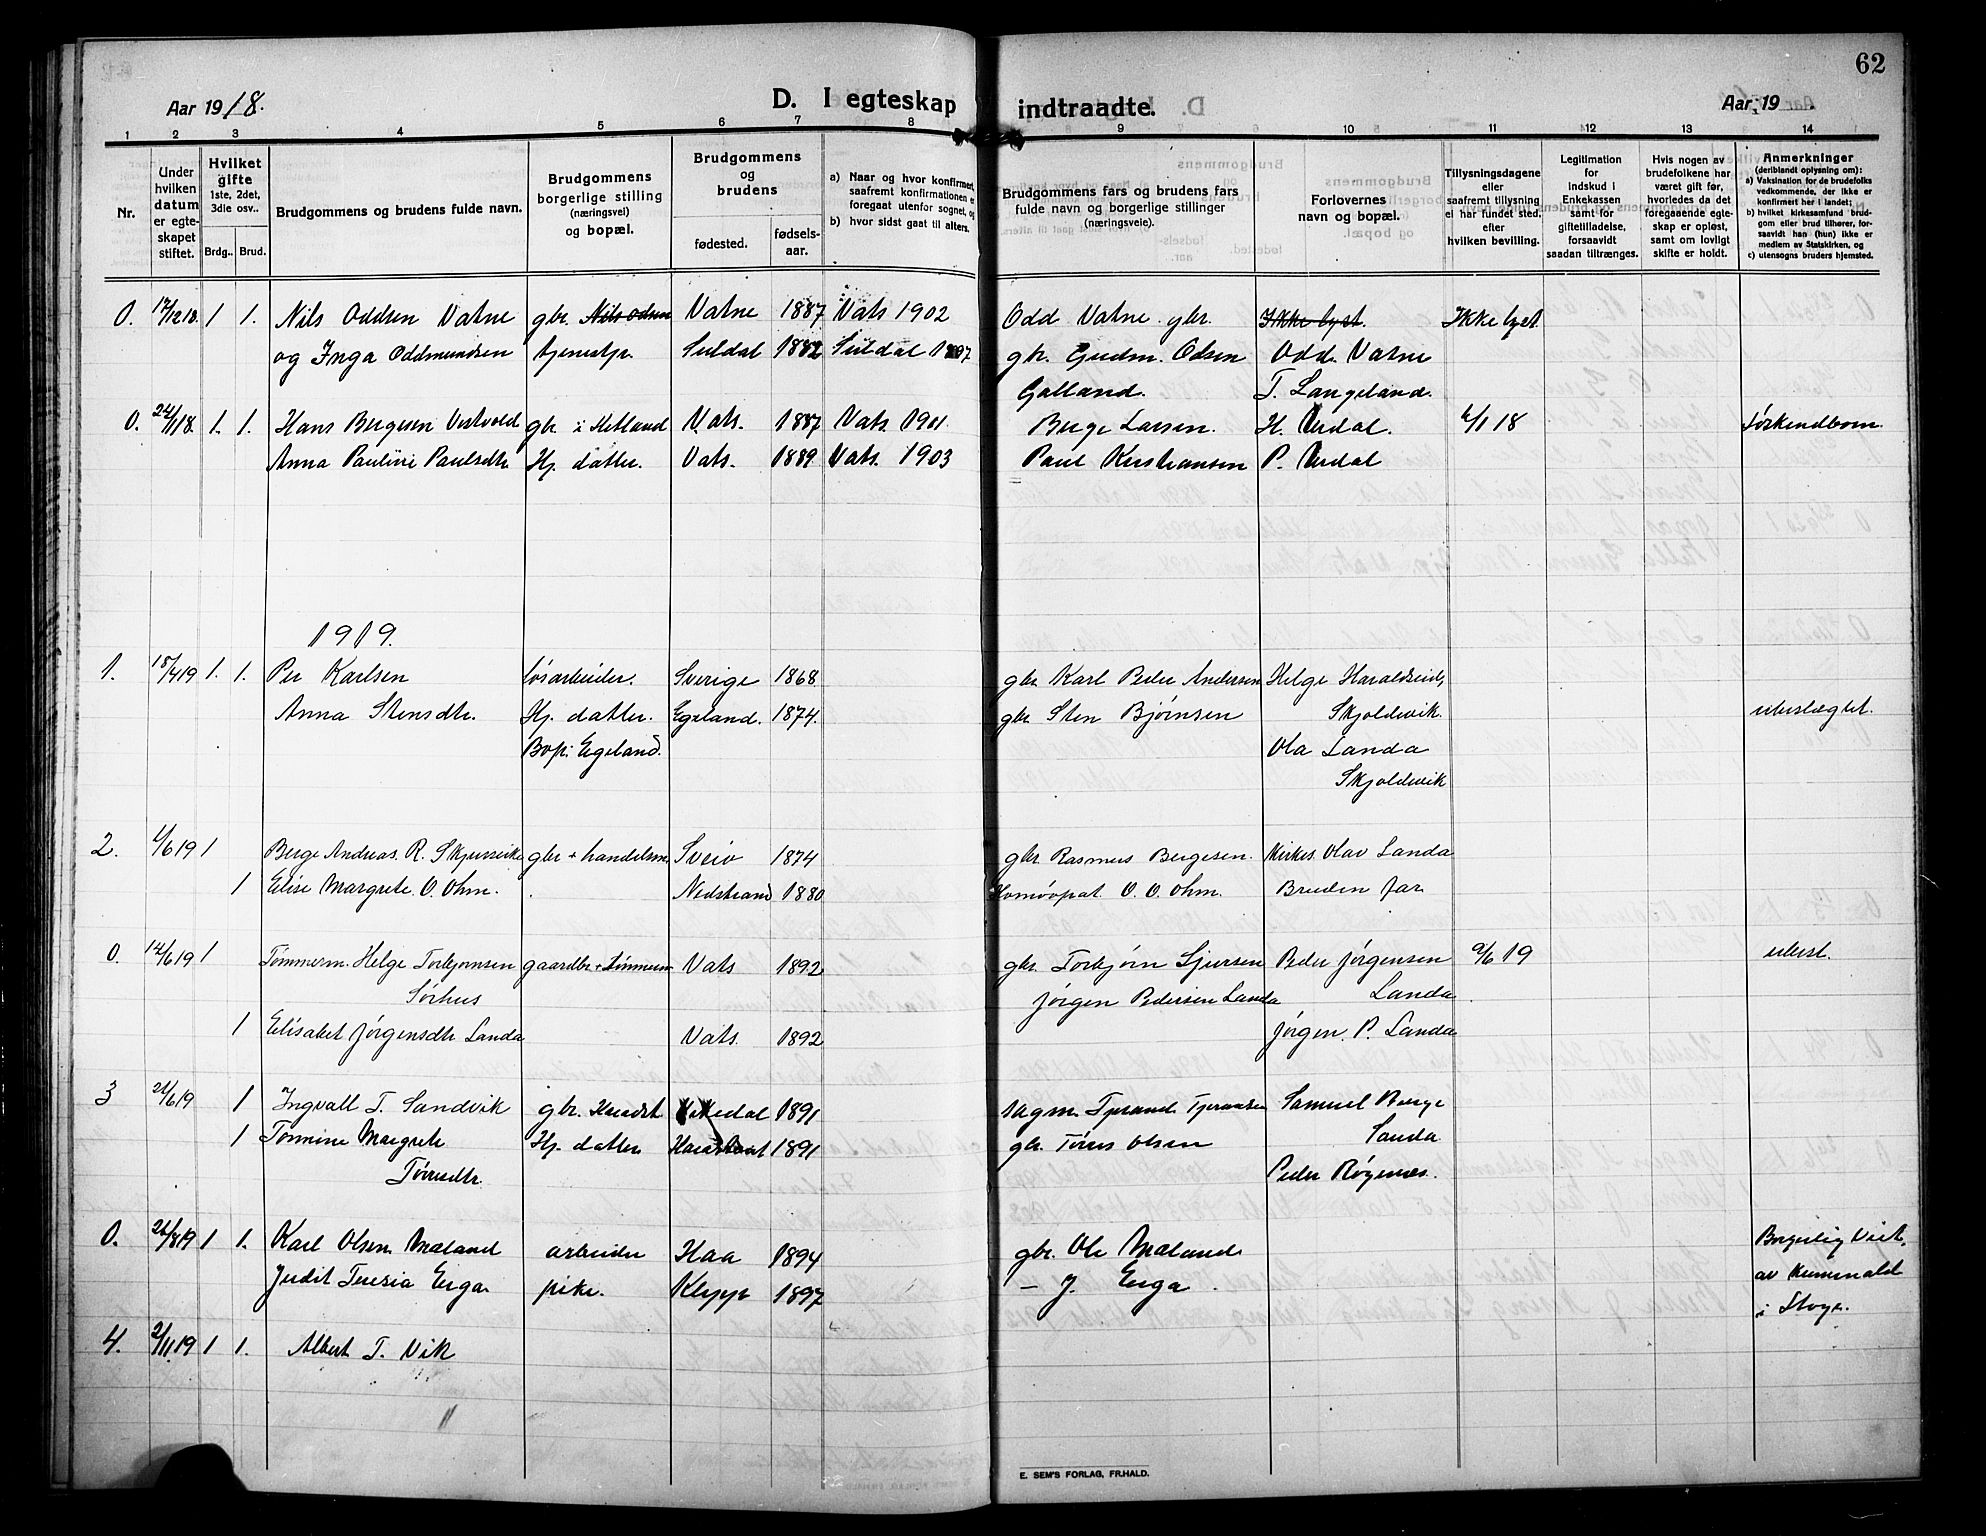 62
Aar 1918.
D. I egteskap indtraadte.
Aar 19
1 2 3 4 5 6 7 8 9 10 11 12 13 14
Nr.
Under hvilken datum er egteskapet stiftet.
Hvilket gifte 1ste, 2det, 3dle osv..
Brdg.. Brud.
Brudgommens og brudens fulde navn.
Brudgommens borgerlige stilling (næringsvei) og bopæl.
Brudgommens og brudens
fødested. fødsels-aar.
a) Naar og hvor konfirmert, saafremt konfirmationen er foregaat utenfor sognet, og
b) hvor sidst gaat til alters.
Brudgommens fars og brudens fars fulde navn og borgerlige stillinger (næringsveie).
Forlovernes navn og bopæl.
Tillysningsdagene eller saafremt tillysning ei har fundet sted. efter hvilken bevilling.
Legitimation for indskud i Enkekassen samt for giftetilladelse, forsaavidt saadan tiltrænges.
Hvis nogen av brudefolkene har været gift før, hvorledes da det foregaaende egteskap er opløst, samt om lovligt skifte er holdt.
Anmerkninger (deriblandt oplysning om):
a) Vaksination for de brudefolks vedkommende, der ikke er konfirmert her i landet;
b) hvilket kirkesamfund brudgom eller brud tilhører, forsaavidt han (hun) ikke er medlem av Statskirken, og
c) utensogns bruders hjemsted.
0. 17/12 18. 1 1. Nils Oddsen Vatne gbr. Nils Odsen Vatne 1887 Vats 1902 Odd Vatne gbr. Ikke lyst. Ikke lyst
og Inga Oddmundsen tjenestp. Suldal 1882 Suldal 1897 gbr. Gudm. Odsen Odd Vatne
Galland. T. Langeland.
0. 24/1 18. 1. 1. Hans Bergesen Vestvold gbr. i Hetland Vats. 1887 Vats. 1901. Berge Larsen. H. Urdal. 6/1 18 Søskendbørn.
Anna Pauline Paulsdtr Hj. datter. Vats. 1889. Vats. 1903 Paul Kristiansen P. Urdal
1919.
1. 18/4 19 1. 1. Per Karlsen løsarbeider. Sverige 1868 gbr. Karl Peder Andersen Helge Haraldseid,
Anna Stensdtr. Hj. datter. Egeland. 1874. gbr. Sten Bjørnsen Skjoldevik. ubeslægtet.
Bop: Egeland. Ola Landa
Skjoldevik
2. 4/6 19 1 Berge Andreas R. Skjersvik gbr + handelsm. Sveio 1874 gbr. Rasmus Bergesen. Kirkes. Olav Landa
1 Elise Margrete O. Ohm. Nedstrand 1880 Homøopat O. O. Ohm. Bruden far
0. 14/6 19 1 Tømmerm. Helge Torbjørnsen gaardbr + Tømmerm Vats 1892 gbr. Torbjørn Sjursen Peder Jørgensen 9/6 19 ubesl.
Sørhus Jørgen Pedersen Landa Landa
1 Elisabet Jørgensdtr Landa Vats. 1892 Jørgen. P. Landa
3 21/6 19 1 Ingvall T. Sandvik gbr. Vikedal 1891 Samuel Berge
1 Tomine Margrete Hj. datter 1891 gbr. Tørris Olsen Landa
Tørresdtr. Peder Røgenes.
0. 26/8 19 1 1. Karl Olsen Mæland arbeider Haa 1894 gbr. Ole Mæland Borgerlig Viet,
Judit Teresia Erga pike. Klepp 1897 — J. Erga. av
i
4. 2/11 19 1 1. Albert T. Vik
E. SEM'S FORLAG, FR.HALD.